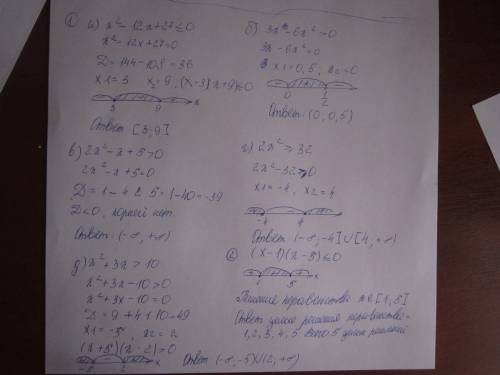 ① а) x² - 12x + 27 ≤ 0
x² - 12x + 27 = 0
D = 144 - 108 = 36
x1 = 3 x2 = 9 , (x-3)(x+9) ≤ 0
3 9 x
Ответ [3; 9]
б) 3x - 6x² > 0
3x - 6x² = 0
x1 = 0,5, x2 = 0
0 1/2
Ответ: (0, 0,5)
в) 2x² - x + 5 > 0
2x² - x + 5 = 0
D = 1 - 4·2·5 = 1 - 40 = -39
D < 0, корней нет.
Ответ: (-∞, +∞)
г) 2x² ≥ 32
2x² - 32 ≥ 0
x1 = -4, x2 = 4
-4 4
Ответ (-∞, -4] ∪ [4, +∞)
д) x² + 3x > 10
x² + 3x - 10 > 0
x² + 3x - 10 = 0
D = 9 + 4·10 = 49
x1 = -5, x2 = 2
(x+5)(x-2) = 0
-5 2
Ответ (-∞, -5) ∪ (2, +∞)
② (x-1)(x-5) ≤ 0
1 5 x
Решение неравенства x ∈ [1, 5]
Ответ целые решения неравенства =
1, 2, 3, 4, 5 всего 5 целых решений